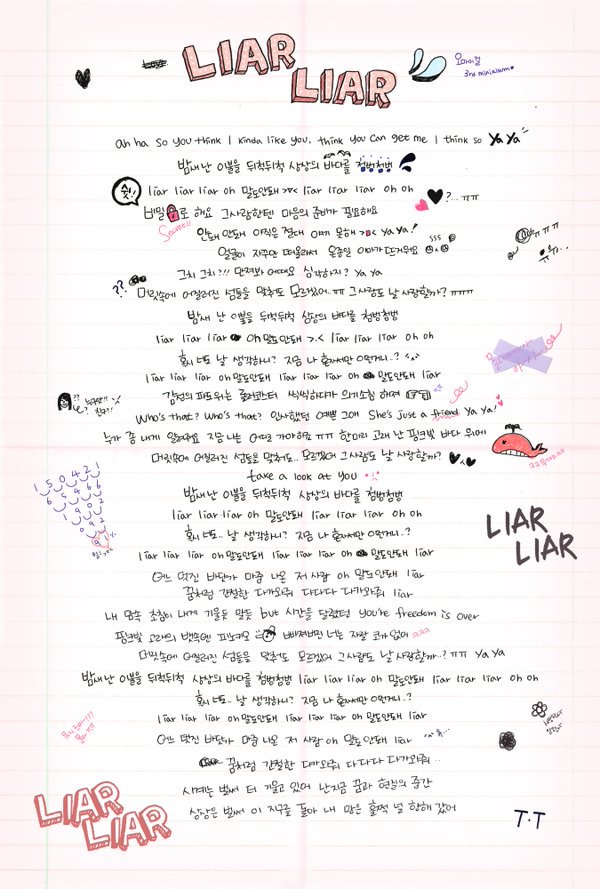 LIAR
LIAR
오마이걸
3rd mini album
ah ha so you think I kinda like you, think you can get me I think so Ya Ya
밤새 난 이불을 뒤척뒤척 상상의 바다를 첨벙첨벙
쉿!!
liar liar liar oh 말도안돼 >.< liar liar liar oh oh
?... ㅠㅠ
비밀로 해요 그사람한텐 마음의 준비가 필요해요
Secret!!
안돼 안돼 아직은 절대 어찌 못해 >.< ya ya!
얼굴이 자꾸만 떠올라서 온종일 이마가 뜨거워요
sss
ㅠㅠㅠ
그치 그치?!! 단정봐 어때요 심각하지? Ya Ya
??
머릿속에 어질러진 섬들을 맞춰도 모르겠어.ㅠㅠ 그사람도 날 사랑할까? ㅠㅠㅠ
밤새 난 이불을 뒤척뒤척 상상의 바다를 첨벙첨벙
liar liar liar oh 말도안돼 >.< liar liar liar oh oh
혹시 너도 날 생각하니? 지금 나 혼자서만 이런거니..?
liar liar liar oh 말도안돼 liar liar liar oh 말도안돼 liar
감정의 파도위는 롤러코스터 씩씩하다가 의기소침 하며
??
누구야!!
친구?!
Who's that? Who's that? 인사했던 예쁜 그애 She's just a friend Ya Ya!
누가 좀 내게 알려줘요 지금 나는 어떤 가야하죠 ㅠㅠ 한마리 고래 난 핑크빛 바다 위에
머릿속에 어질러진 섬들을 맞춰도.. 모르겠어 그사람도 날 사랑할까?
take a look at you
1 5 0 4 2 1
6 5 4 6 3
1 9 0 9
0 9 2
9 1%
밤새 난 이불을 뒤척뒤척 상상의 바다를 첨벙첨벙
liar liar liar oh 말도안돼 liar liar liar oh oh
혹시 너도.. 날 생각하니? 지금 나 혼자서만 이런거니..?
LIAR
LIAR
liar liar liar oh 말도안돼 liar liar liar oh 말도안돼 liar
어느 멋진 바닷가 마중 나온 저 사람 oh 말도안돼 liar
꿈처럼 간절한 다가와줘 다다다다 다가와줘 liar
내 맘속 초침이 네게 기울듯 말듯 but 시간을 달렸던 you're freedom is over
핑크빛 고래의 뱃속엔 피노키오 빠져버린 너는 자랄 코가 없어 ㅋㅋㅋ
머릿속에 어질러진 섬들을 맞춰도 모르겠어 그사람도 날 사랑할까..? ㅠㅠ Ya Ya
밤새 난 이불을 뒤척뒤척 상상의 바다를 첨벙첨벙 liar liar liar oh 말도안돼 liar liar liar oh oh
혹시 너도.. 날 생각하니? 지금 나 혼자서만 이런거니..?
liar liar liar oh 말도안돼 liar liar liar oh 말도안돼 liar
어느 멋진 바닷가 마중 나온 저 사람 oh 말도안돼 liar
꿈처럼 간절한 다가와줘 다다다다 다가와줘..
시계는 벌써 더 기울고 있어 난 지금 꿈과 현실의 중간
상상은 벌써 이 지구를 돌아 내 맘은 훌쩍 널 향해 갔어
LIAR
LIAR
T.T